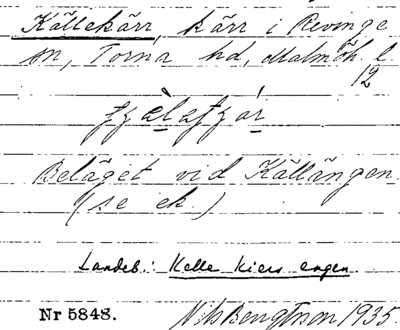 Källekärr, kärr i Revinge
sn, Torna hd, Malmöh. l.
12
Beläget vid Källängen
(se ek.)
Landeb.: Kelle Kiers engen.
Nr 5848. Nils Bengtsson 1935.